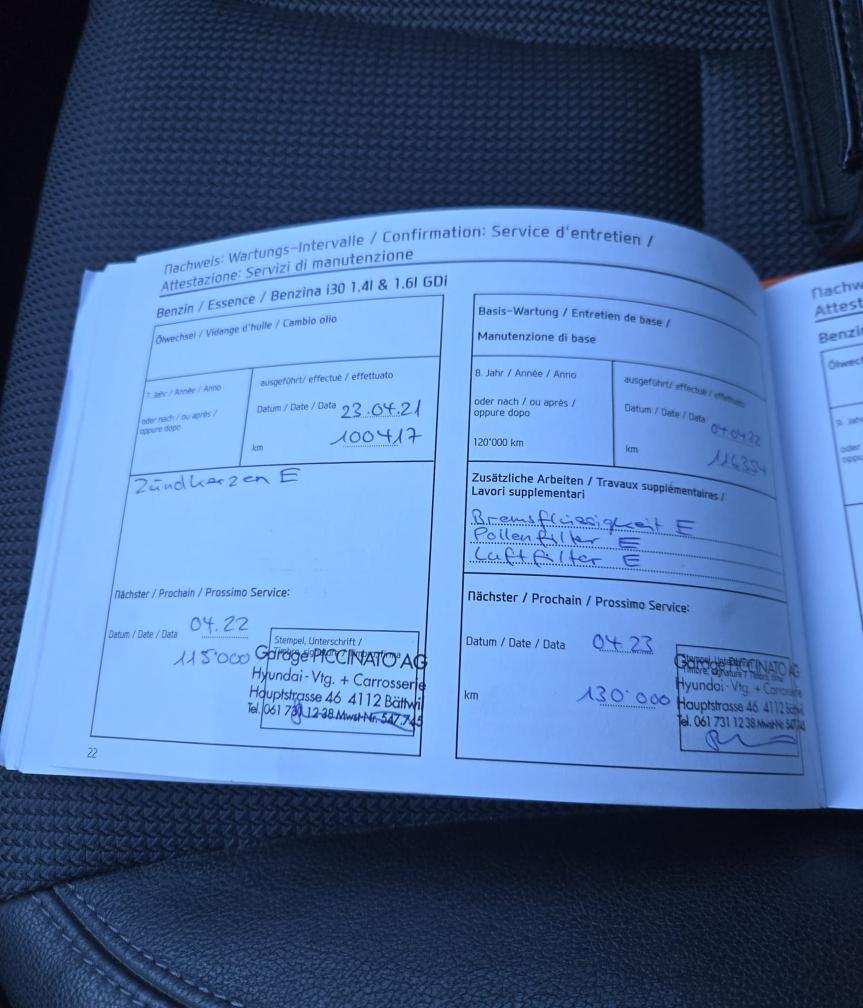 Nachweis: Wartungs-Intervalle / Confirmation: Service d'entretien /
Attestazione: Servizi di manutenzione
Benzin / Essence / Benzina i30 1.4l & 1.6l GDi
Ölwechsel / Vidange d'huile / Cambio olio
7. Jahr / Année / Anno
oder nach / ou après /
oppure dopo
ausgeführt / effectué / effettuato
Datum / Date / Data 23.04.21
km 100417
Zündkerzen E
Nächster / Prochain / Prossimo Service:
Datum / Date / Data 04.22
115'000
Stempel, Unterschrift /
Garage PICCINATO AG
Hyundai-Vtg. + Carrosserie
Hauptstrasse 46 4112 Bättwil
Tel. 061 731 12 38 Mwst-Nr. 547.745
22
Basis-Wartung / Entretien de base /
Manutenzione di base
8. Jahr / Année / Anno
oder nach / ou après /
oppure dopo
120'000 km
ausgeführt / effectué / effettuato
Datum / Date / Data 04.04.22
km 116354
Zusätzliche Arbeiten / Travaux supplémentaires /
Lavori supplementari
Bremsflüssigkeit E
Pollenfilter E
Luftfilter E
Nächster / Prochain / Prossimo Service:
Datum / Date / Data 04.23
km 130'000
Stempel, Unterschrift /
Timbre, signature /
Garage PICCINATO AG
Hyundai-Vtg. + Carrosserie
Hauptstrasse 46 4112 Bättwil
Tel. 061 731 12 38 Mwst-Nr. 547.745
Nachw
Attest
Benzin
Ölwechse
9. Jah
oder
oppu